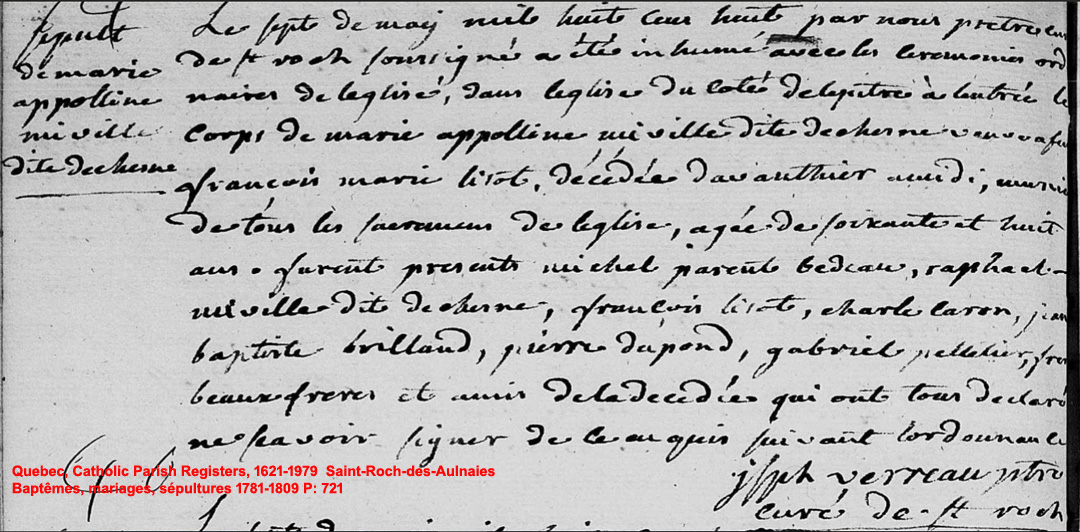 sepult
de marie
appolline
miville
dite dechesne
Le sept de may mil huit cens huit par nous pretre cur
de st roch soussigné a été inhumé avec les ceremonies ord
naires de leglise, dans leglise du coté de lepitre à lentrée le
corps de marie appolline miville dite dechesne veuve a feu
françois marie lizot, décédée davanthier a midi, munie
de tous les sacremens de leglise, agée de soixante et huit
ans. furent presents michel parent bedeau, raphael
miville dit dechesne, françois lizot, charle caron, jean
baptiste brilland, pierre dupond, gabriel pelletier, frer
beaux freres et amis de la decedée qui ont tous declaré
ne savoir signer de ce suivant lordonnance
jsph verreau ptre
curé de st roch
Quebec, Catholic Parish Registers, 1621-1979 Saint-Roch-des-Aulnaies
Baptêmes, mariages, sépultures 1781-1809 P: 721